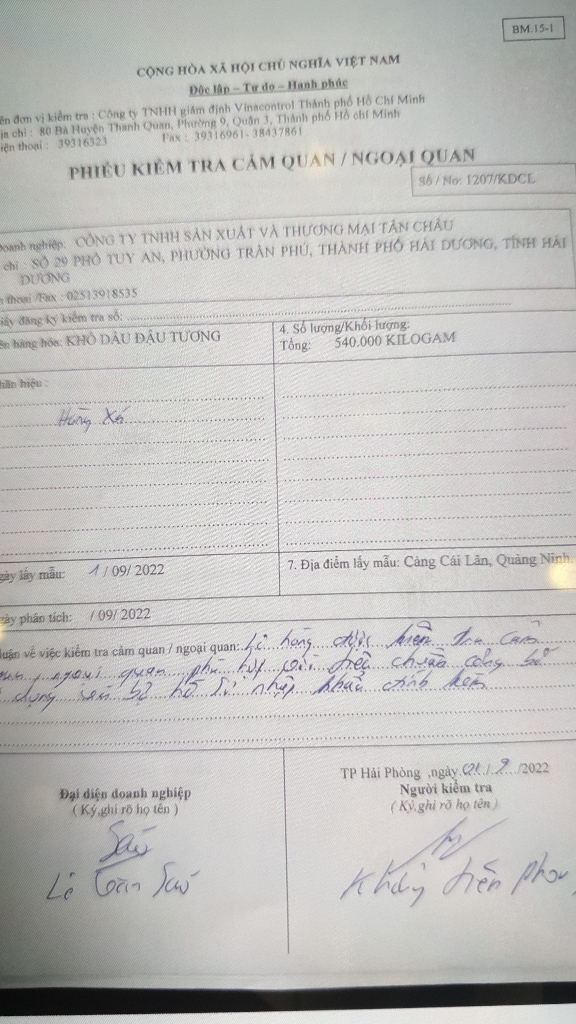 BM.15-1
CỘNG HÒA XÃ HỘI CHỦ NGHĨA VIỆT NAM
Độc lập – Tự do – Hạnh phúc
ên đơn vị kiểm tra : Công ty TNHH giám định Vinacontrol Thành phố Hồ Chí Minh
ịa chỉ : 80 Bà Huyện Thanh Quan, Phường 9, Quận 3, Thành phố Hồ chí Minh
iện thoại : 39316323 Fax : 39316961- 38437861
PHIẾU KIỂM TRA CẢM QUAN / NGOẠI QUAN
Số / No: 1207/KDCL
Doanh nghiệp: CÔNG TY TNHH SẢN XUẤT VÀ THƯƠNG MẠI TÂN CHÂU
chỉ : SỐ 29 PHỐ TUY AN, PHƯỜNG TRẦN PHÚ, THÀNH PHỐ HẢI DƯƠNG, TỈNH HẢI
DƯƠNG
thoại /Fax : 02513918535
iấy đăng ký kiểm tra số:
ên hàng hóa: KHÔ DẦU ĐẬU TƯƠNG
4. Số lượng/Khối lượng:
Tổng: 540.000 KILOGAM
hãn hiệu :
Hàng Xá
gày lấy mẫu: 1 / 09/ 2022
7. Địa điểm lấy mẫu: Cảng Cái Lân, Quảng Ninh.
gày phân tích: / 09/ 2022
luận về việc kiểm tra cảm quan / ngoại quan: Lô hàng được kiểm tra cảm
quan, ngoại quan phù hợp với tiêu chuẩn công bố
dụng trong bộ hồ sơ nhập khẩu đính kèm
TP Hải Phòng ,ngày 01 / 9 /2022
Đại diện doanh nghiệp
( Ký,ghi rõ họ tên )
Người kiểm tra
( Ký,ghi rõ họ tên )
Sáu
Lê Sáu
Tiến